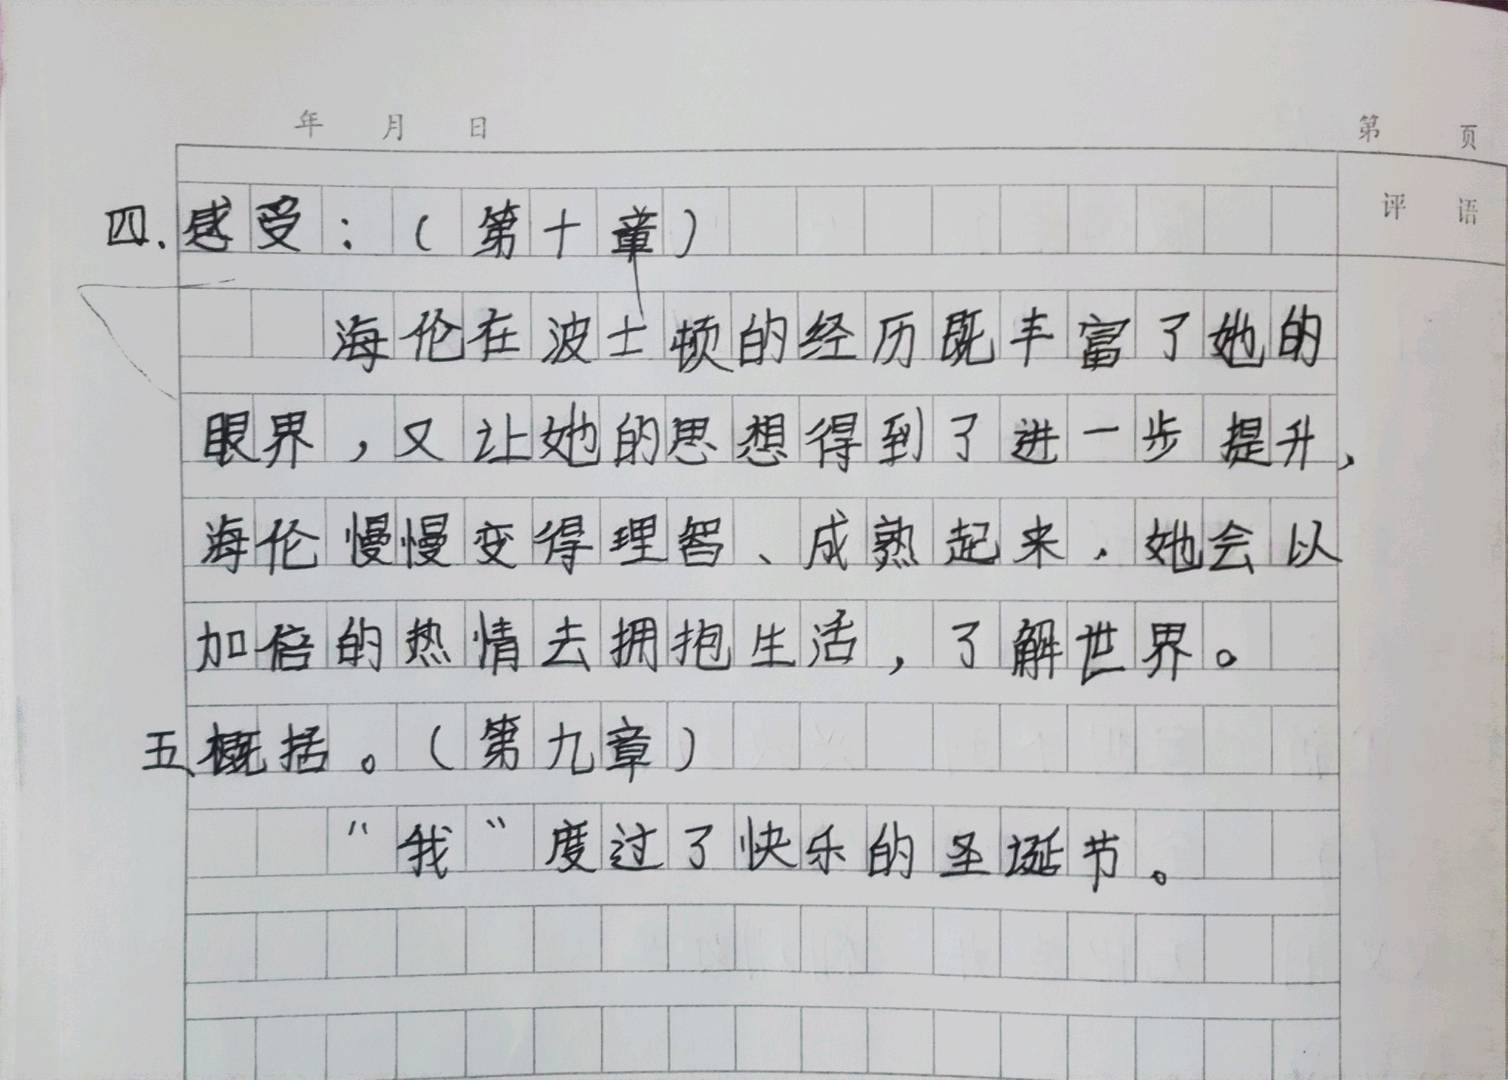 年 月 日
第 页
评 语
四、感受：（第十章）
海伦在波士顿的经历既丰富了她的
眼界，又让她的思想得到了进一步提升，
海伦慢慢变得理智、成熟起来，她会以
加倍的热情去拥抱生活，了解世界。
五、概括。（第九章）
“我”度过了快乐的圣诞节。